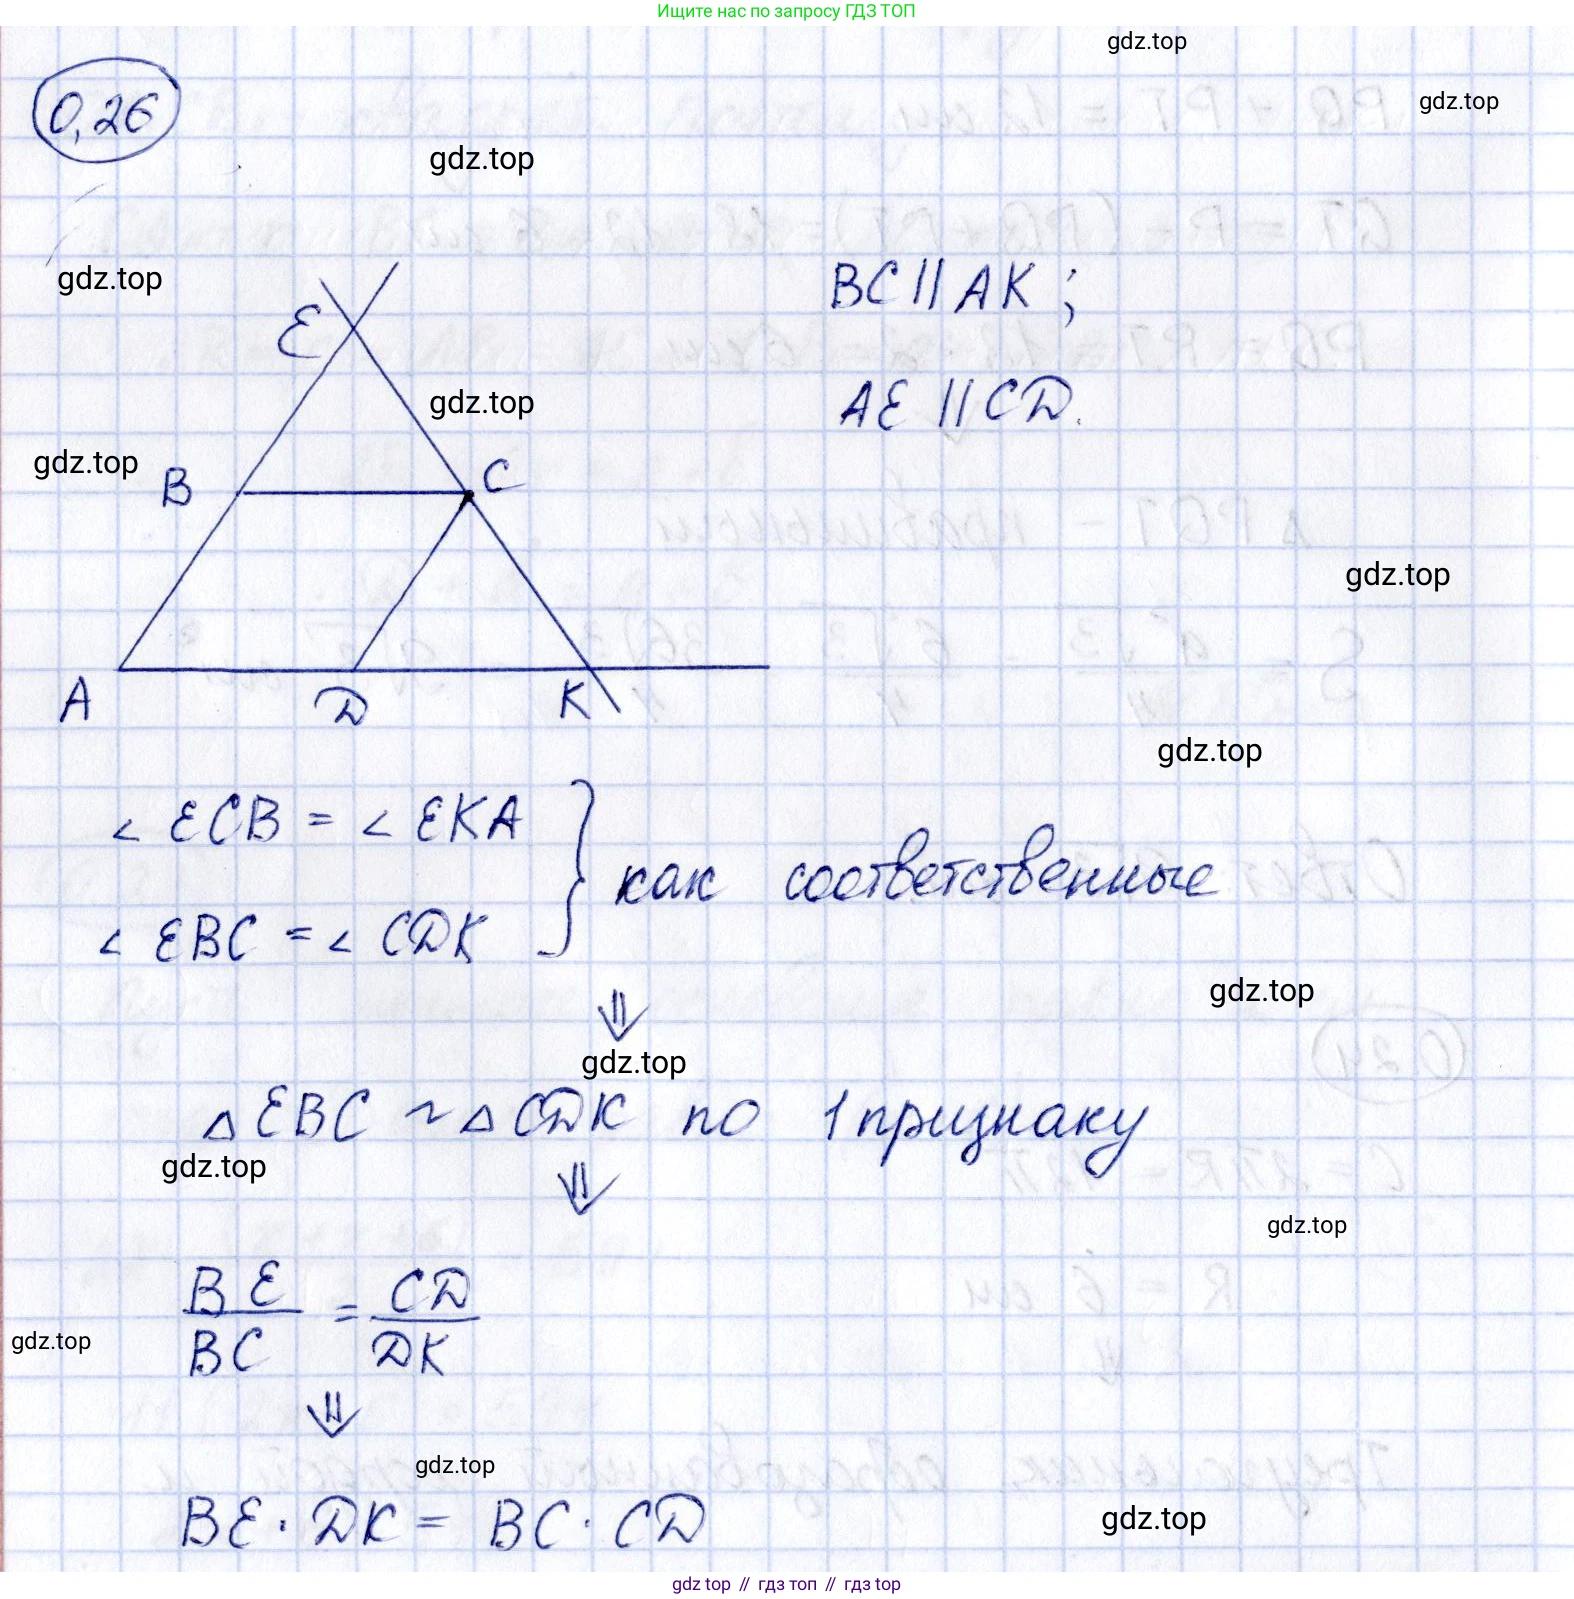 Ищите нас по запросу ГДЗ ТОП
gdz.top
0,26
gdz.top
gdz.top
gdz.top
BC || AK ;
E
AE || CD.
gdz.top
gdz.top
B
C
gdz.top
A
D
K
gdz.top
∠ ECB = ∠ EKA
∠ EBC = ∠ CDK
} как соответственные
gdz.top
⇓
gdz.top
△ EBC ~ △ CDK по 1 признаку
gdz.top
⇓
gdz.top
BE/BC = CD/DK
gdz.top
⇓
gdz.top
BE · DK = BC · CD
gdz.top
gdz top // гдз топ // гдз top